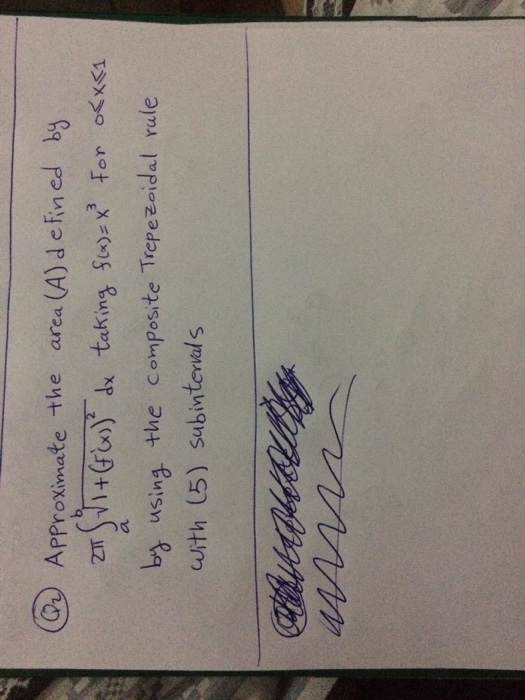 Q2 Approximate the area (A) defined by
2π ∫ₐᵇ √(1+(f'(x))²) dx taking f(x)=x³ for 0≤x≤1
by using the composite Trepezoidal rule
with (5) subintervals